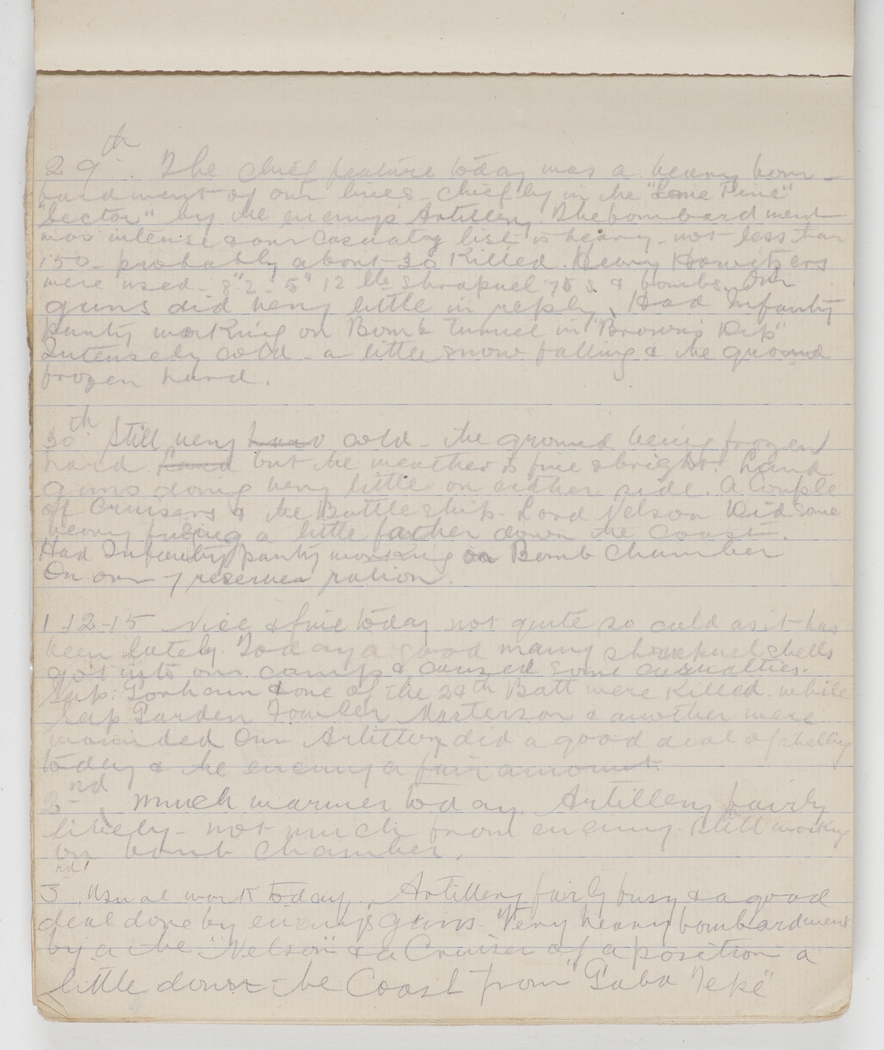 29th. The chief feature today was a heavy bom-
bardment of our lines chiefly in the "Lone Pine"
"Sector" by the enemy's Artillery. The bombardment
was intense & our Casualty list is heavy - not less than
150 - probably about 30 Killed. Heavy Howitzers
were used - 8"2 - 5" 12 lb shrapnel 75s & bombs. Our
guns did very little in reply. Had Infantry
party working on Bomb tunnel in "Brown's Dip"
Intensely cold - a little snow falling & the ground
frozen hard.
30th Still very cold - the ground being frozen
hard but the weather is fine & bright. Land
guns doing very little on either side. A Couple
of Cruisers & the Battleship Lord Nelson did some
heavy firing a little farther down the Coast.
Had Infantry party working on Bomb Chamber
On our reserve ration.
1-12-15 Nice & fine today not quite so cold as it has
been lately. Today a good many shrapnel shells
got into our camp & caused some casualties.
Sap. & one of the 24th Batt were Killed while
Sap Parden Fowler Masterson & another were
wounded Our Artillery did a good deal of shelling
today & the enemy a fair amount.
rd. Much warmer today. Artillery fairly
lively - not much from enemy. Still working
on bomb chamber.
3rd Usual work today. Artillery fairly busy & a good
deal done by enemy's guns. Very heavy bombardment
by the "Nelson" & a Cruiser of a position a
little down the Coast from "Gaba Tepe"